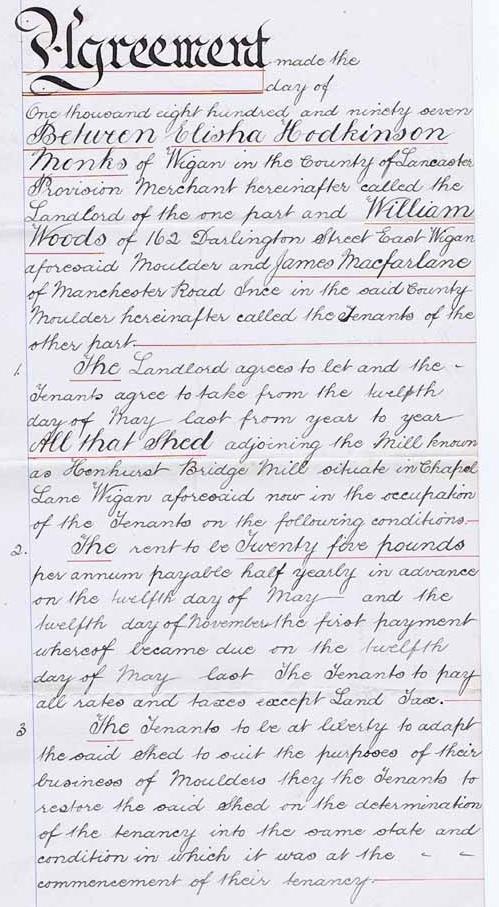 Agreement made the
day of
One thousand eight hundred and ninety seven
Between Elisha Hodkinson
Monks of Wigan in the County of Lancaster
Provision Merchant hereinafter called the
Landlord of the one part and William
Woods of 162 Darlington Street East Wigan
aforesaid Moulder and James Macfarlane
of Manchester Road Ince in the said County
Moulder hereinafter called the Tenants of the
other part
1. The Landlord agrees to let and the -
Tenants agree to take from the twelfth
day of May last from year to year
All that Shed adjoining the Mill known
as Henhurst Bridge Mill situate in Chapel
Lane Wigan aforesaid now in the occupation
of the Tenants on the following conditions.
2. The rent to be Twenty five pounds
per annum payable half yearly in advance
on the twelfth day of May and the
twelfth day of November the first payment
whereof became due on the twelfth
day of May last The Tenants to pay
all rates and taxes except Land Tax.
3 The Tenants to be at liberty to adapt
the said Shed to suit the purposes of their
business of Moulders they the Tenants to
restore the said Shed on the determination
of the tenancy into the same state and
condition in which it was at the - -
commencement of their tenancy